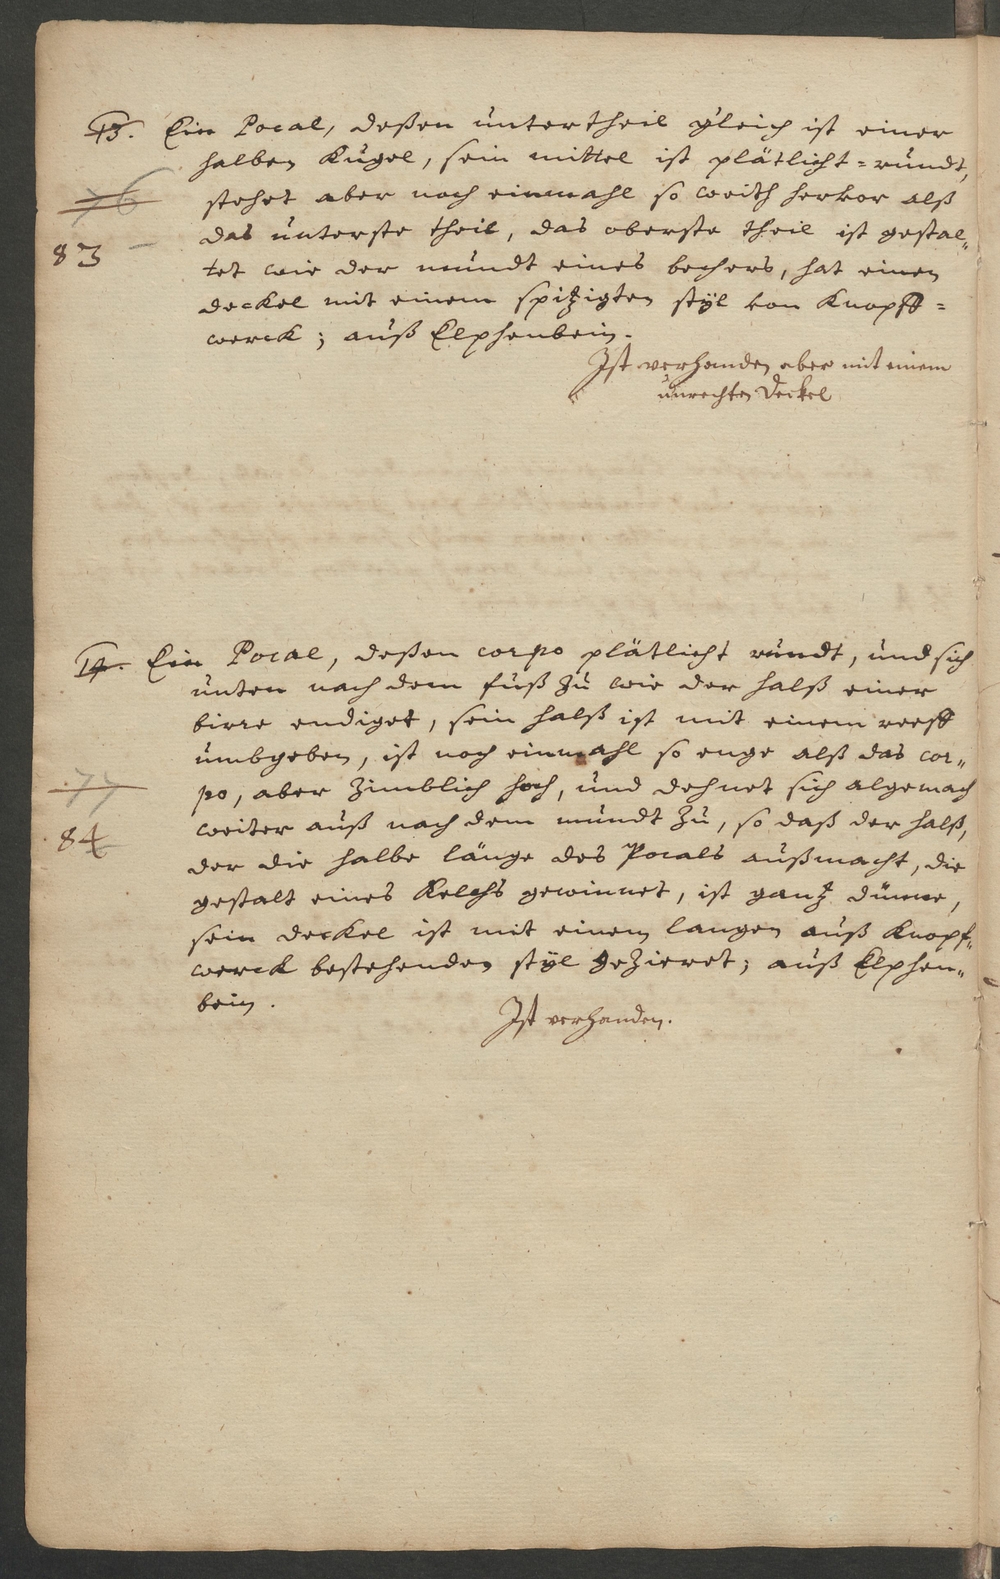 13. Ein Pocal, deßen untertheil gleich ist einer
halben Kugel, sein mittel ist plätlicht=rundt,
76
stehet aber noch einmahl so weith hervor alß
83
das unterste theil, das oberste theil ist gestal„
tet wie der mundt eines bechers, hat einen
deckel mit einem spitzigten stÿl von Knopff=
werck; auß Elphenbein.
Ist verhanden aber mit einem
unrechten Deckel
14. Ein Pocal, deßen corpo plätlicht rundt, und sich
unten nach dem fuß zu wie der halß einer
birre endiget, sein halß ist mit einem reeff
umbgeben, ist noch einmahl so enge alß das cor„
77
po, aber zimblich hoch, und dehnet sich algemach
84
weiter auß nach dem mundt zu, so daß der halß,
der die halbe länge des Pocals außmacht, die
gestalt eines Kelchs gewinnet, ist gantz dünne,
sein deckel ist mit einem langen auß Knopf„
werck bestehenden stÿl gezieret; auß Elphen„
bein.
Ist verhanden.